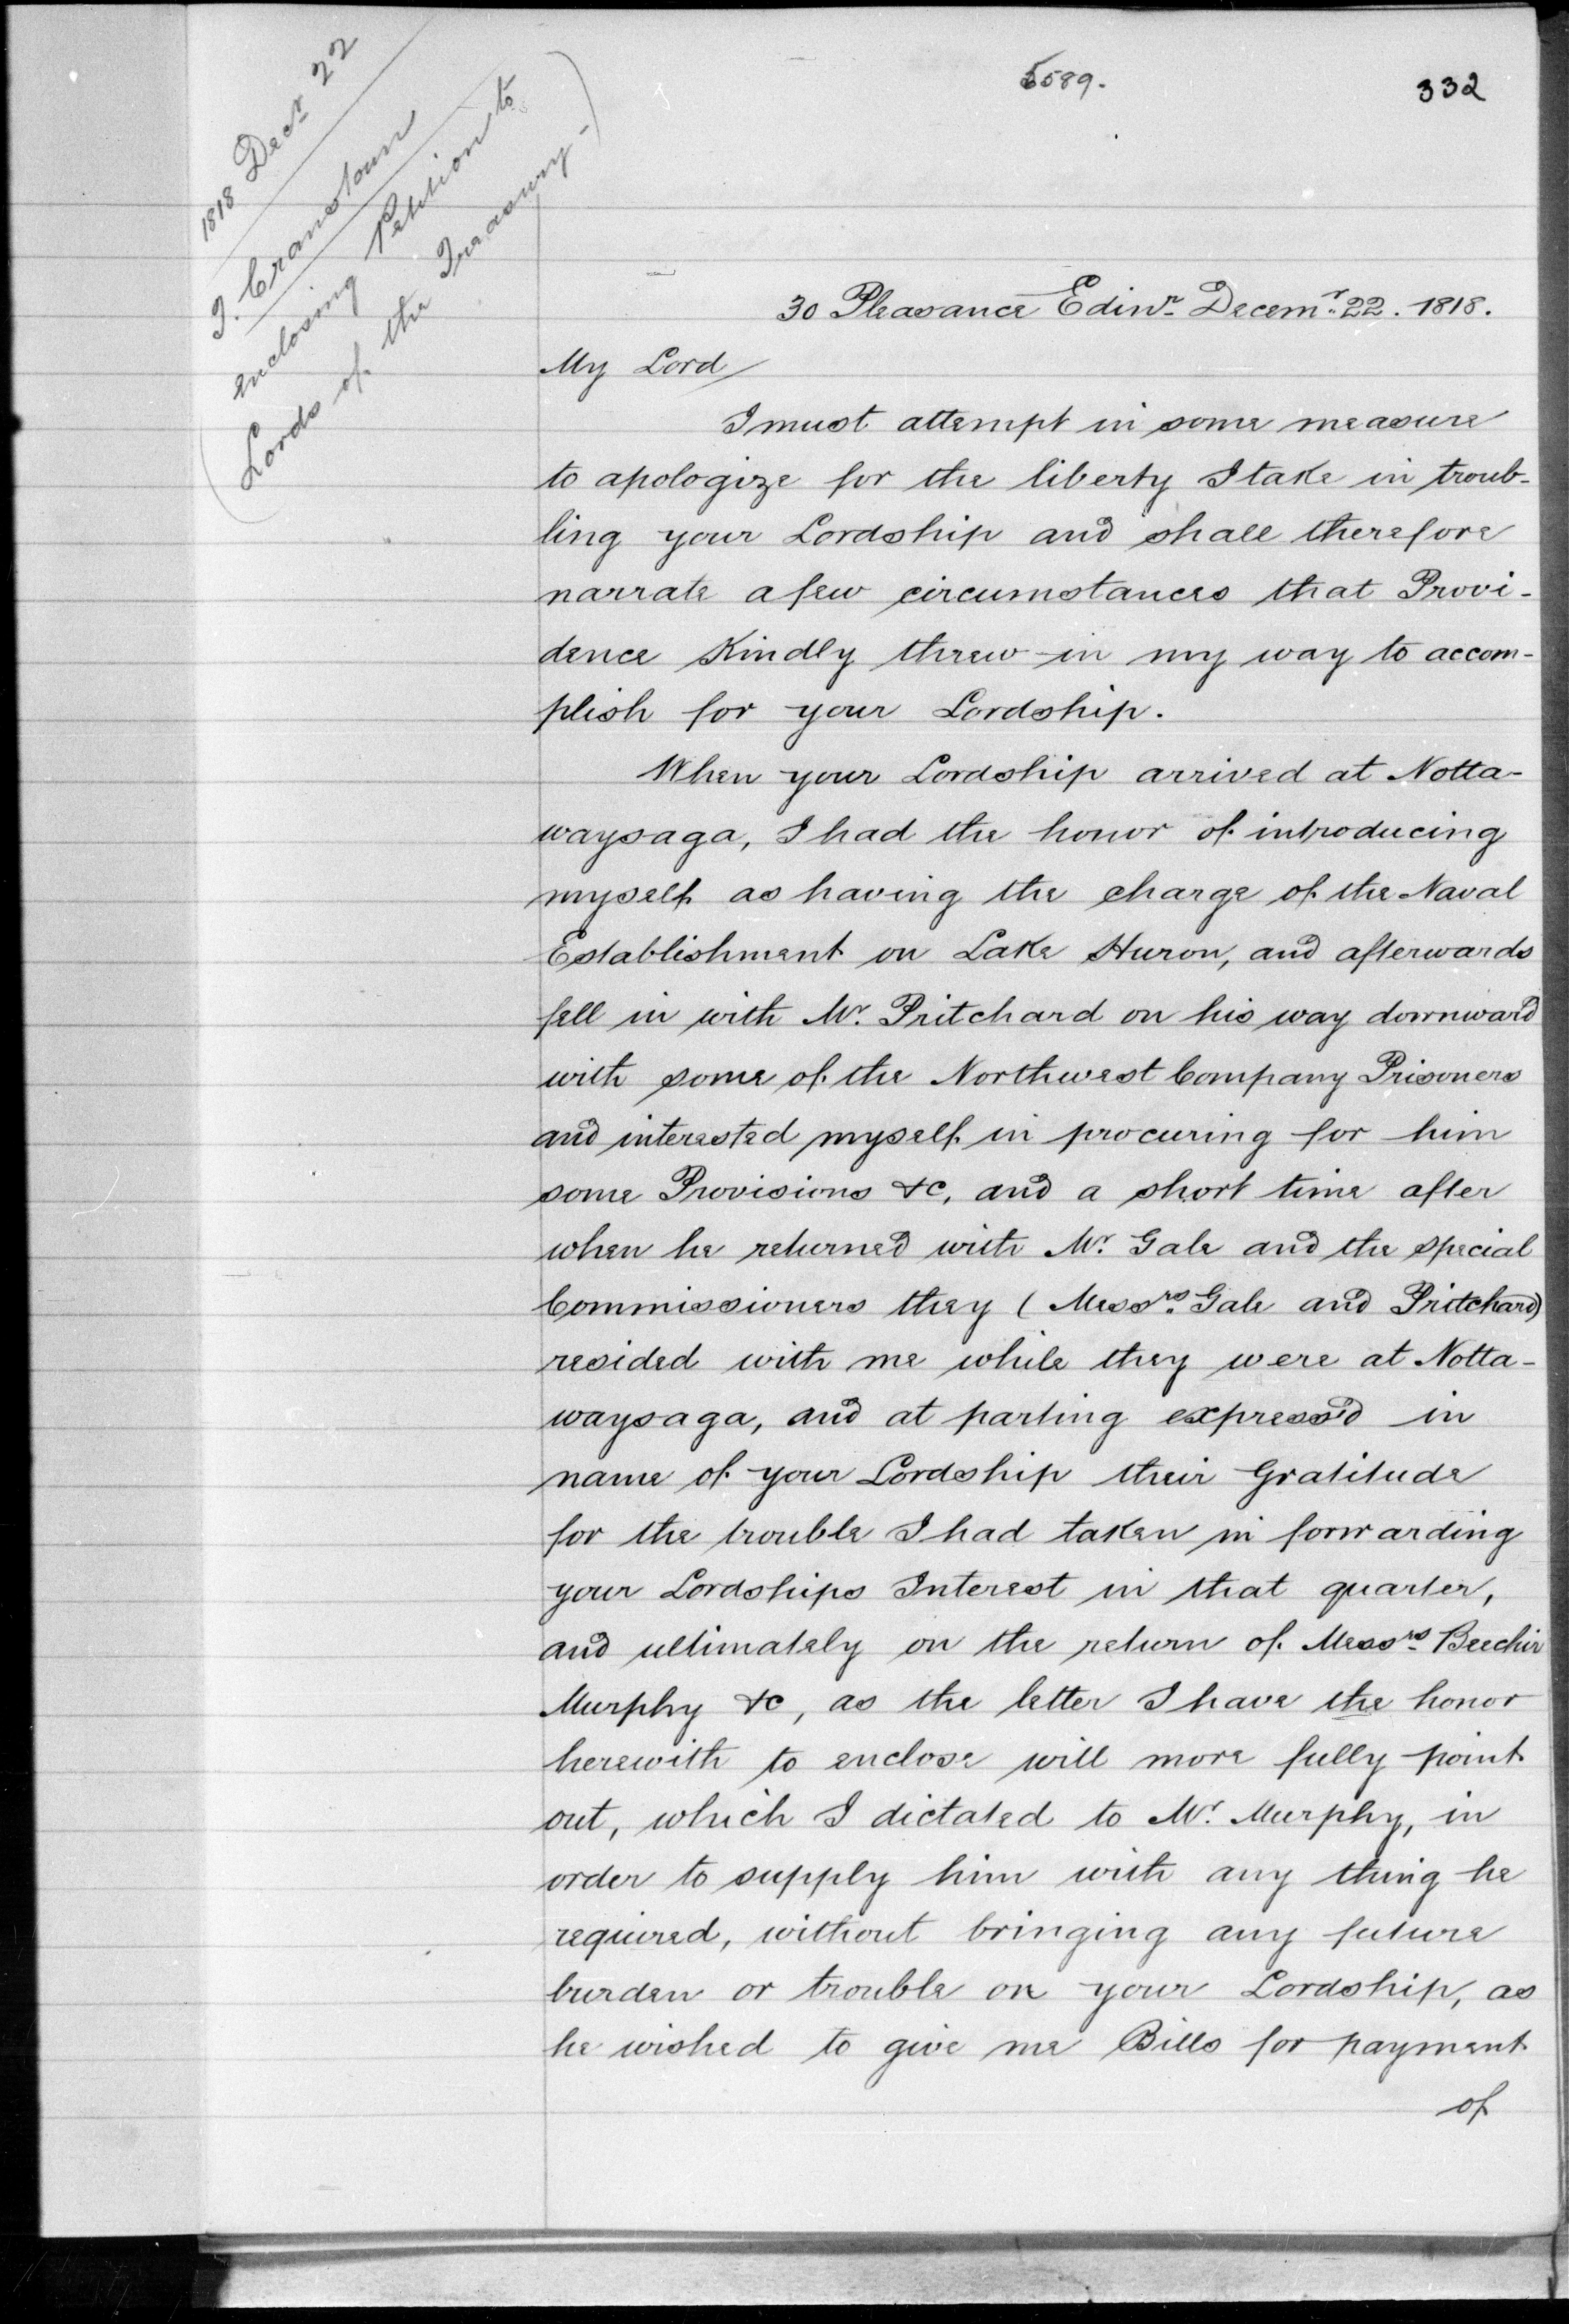 5589.
332
1818 Decr 22
J. Cranstoun
enclosing Petition to
(Lords of the Treasury-)
30 Pleasance Edinr Decemr 22. 1818.
My Lord
I must attempt in some measure
to apologize for the liberty I take in troub-
ling your Lordship and shall therefore
narrate a few circumstances that Provi-
dence Kindly threw in my way to accom-
plish for your Lordship.
When your Lordship arrived at Notta-
waysaga, I had the honor of introducing
myself as having the charge of the Naval
Establishment on Lake Huron, and afterwards
fell in with Mr. Pritchard on his way downward
with some of the Northwest Company Prisoners
and interested myself in procuring for him
some Provisions &c, and a short time after
when he returned with Mr. Gale and the special
Commissioners they (Messrs. Gale and Pritchard)
resided with me while they were at Notta-
waysaga, and at parting express'd in
name of your Lordship their Gratitude
for the trouble I had taken in forwarding
your Lordships Interest in that quarter,
and ultimately on the return of Messrs Beechir
Murphy &c, as the letter I have the honor
herewith to enclose will more fully point
out, which I dictated to Mr. Murphy, in
order to supply him with any thing he
required, without bringing any future
burden or trouble on your Lordship, as
he wished to give me Bills for payment
of